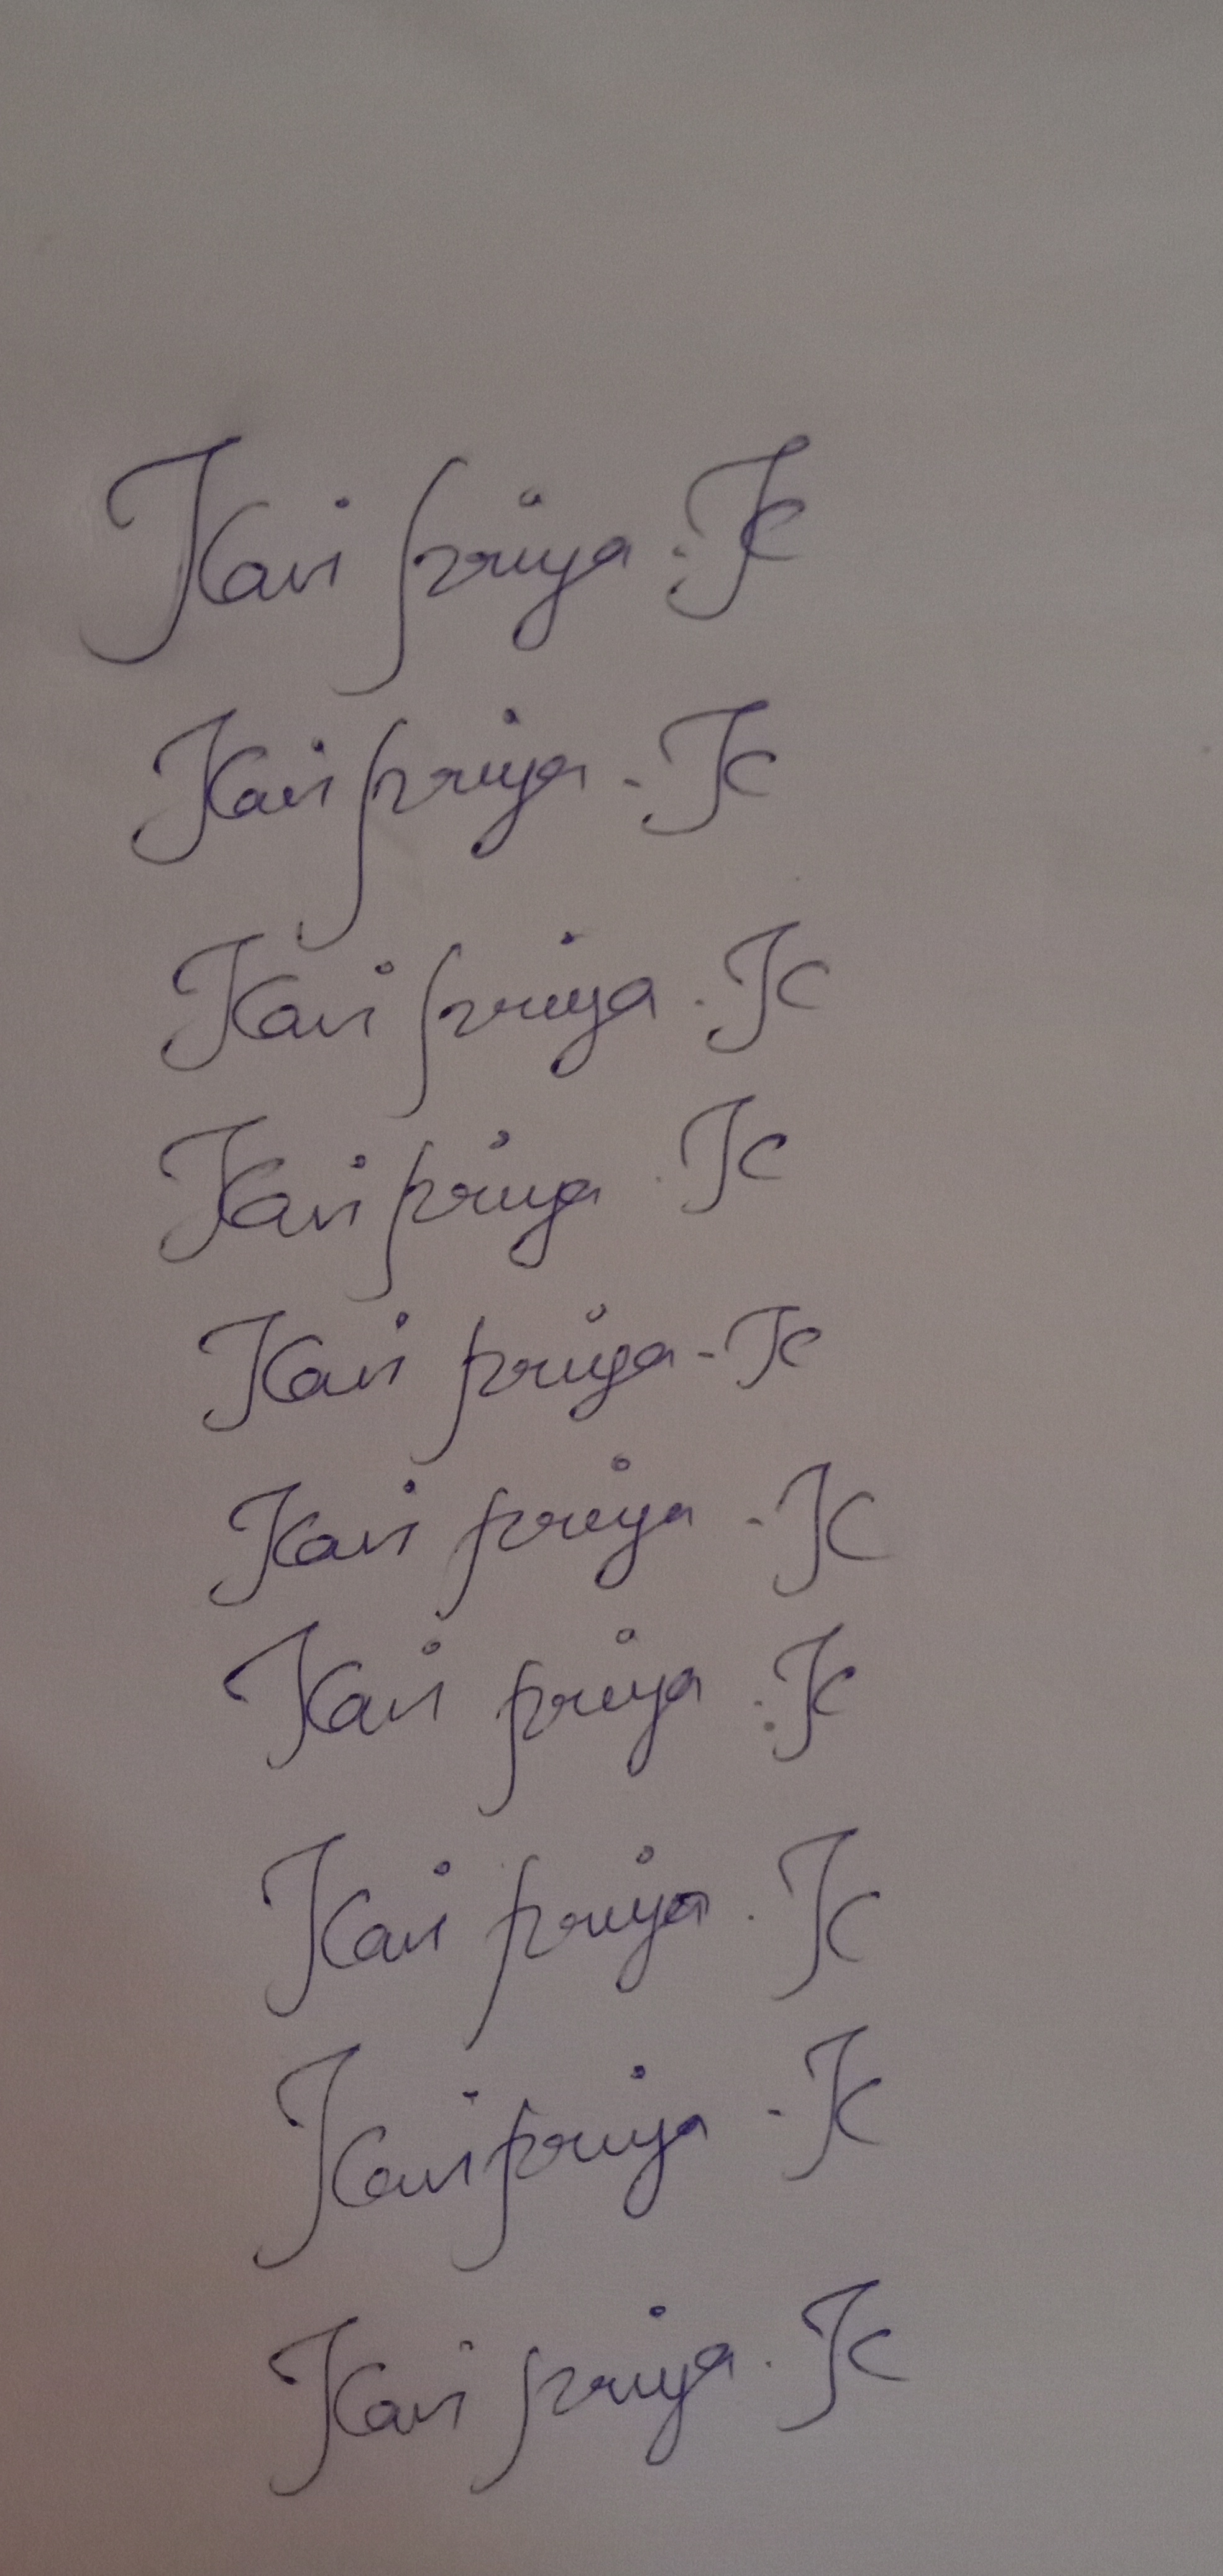 Kavi priya . K
Kavi priya - K
Kavi priya . K
Kavi priya . K
Kavi priya - K
Kavi priya - K
Kavi priya . K
Kavi priya . K
Kavi priya - K
Kavi priya . K